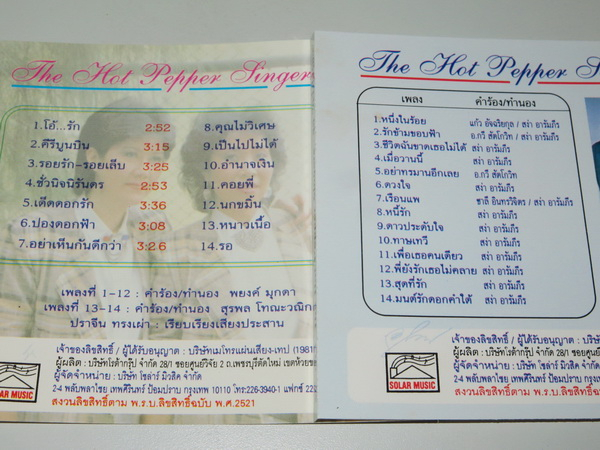 The Hot Pepper Singers
1.โอ้...รัก 2:52
2.คีรีบูนบิน 3:15
3.รอยรัก-รอยเล็บ 3:25
4.ชั่วนิจนิรันดร 2:53
5.เด็ดดอกรัก 3:36
6.ปองดอกฟ้า 3:08
7.อย่าเห็นกันดีกว่า 3:26
8.คุณไม่วิเศษ
9.เป็นไปไม่ได้
10.อำนาจเงิน
11.คอยพี่
12.นกขมิ้น
13.หนาวเนื้อ
14.รอ
เพลงที่ 1-12 : คำร้อง/ทำนอง พยงค์ มุกดา
เพลงที่ 13-14 : คำร้อง/ทำนอง สุรพล โทณะวณิก
ปราจีน ทรงเผ่า : เรียบเรียงเสียงประสาน
เจ้าของลิขสิทธิ์ / ผู้ได้รับอนุญาต : บริษัทเมโทรแผ่นเสียง-เทป (1981)
ผู้ผลิต : บริษัทโรต้ากรุ๊ป จำกัด 28/1 ซอยศูนย์วิจัย 2 ถ.เพชรบุรีตัดใหม่ เขตห้วยขวาง
ผู้จัดจำหน่าย : บริษัท โซล่าร์ มิวสิค จำกัด
2-4 พลับพลาไชย เทพศิรินทร์ ป้อมปราบ กรุงเทพ 10110 โทร:226-3940-1 แฟกซ์
สงวนลิขสิทธิ์ตาม พ.ร.บ.ลิขสิทธิ์ฉบับ พ.ศ.2521
SOLAR MUSIC
The Hot Pepper S
เพลง คำร้อง/ทำนอง
1.หนึ่งในร้อย แก้ว อัจฉริยกุล / สง่า อารัมภีร
2.รักข้ามขอบฟ้า อ.กวี สัตโกวิท / สง่า อารัมภีร
3.ชีวิตฉันขาดเธอไม่ได้ สง่า อารัมภีร
4.เมื่อวานนี้ สง่า อารัมภีร
5.อย่าทรมานอีกเลย อ.กวี สัตโกวิท
6.ดวงใจ สง่า อารัมภีร
7.เรือนแพ ชาลี อินทรวิจิตร / สง่า อารัมภีร
8.หนี้รัก สง่า อารัมภีร
9.ดาวประดับใจ สง่า อารัมภีร
10.ทาษเทวี สง่า อารัมภีร
11.เพื่อเธอคนเดียว สง่า อารัมภีร
12.พี่ยังรักเธอไม่คลาย สง่า อารัมภีร
13.สุดที่รัก สง่า อารัมภีร
14.มนต์รักดอกคำใต้ สง่า อารัมภีร
เจ้าของลิขสิทธิ์ / ผู้ได้รับอนุญาต : บริษั
ผู้ผลิต : บริษัทโรต้ากรุ๊ป จำกัด 28/1 ซอยศูนย์
ผู้จัดจำหน่าย : บริษัท โซล่าร์ มิวสิค จำกัด
2-4 พลับพลาไชย เทพศิรินทร์ ป้อมปราบ กรุ
สงวนลิขสิทธิ์ตาม พ.ร.บ.ลิขสิทธิ์
SOLAR MUSIC